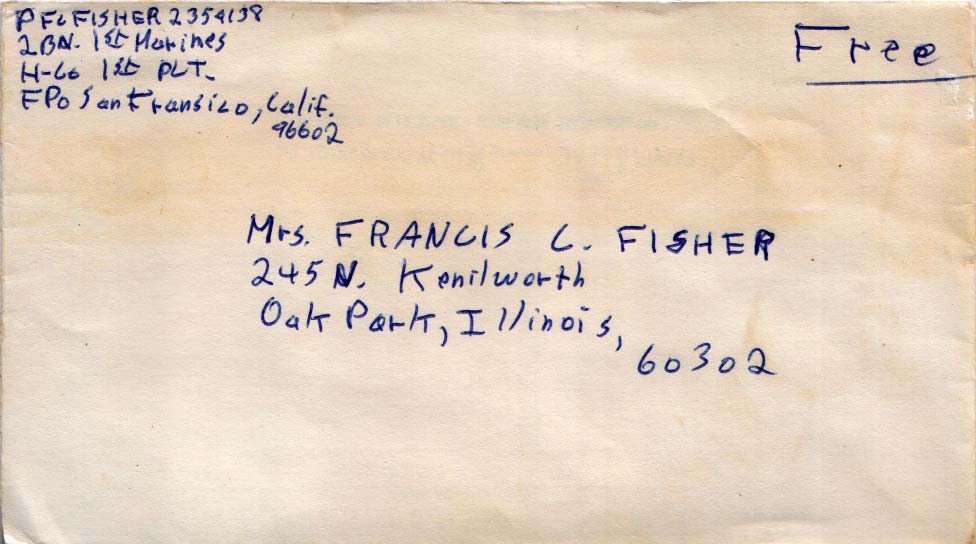 PFc FISHER 2354138
2BN. 1st Marines
H-Co 1st PLT.
FPO San Fransico, Calif.
96602
Free
Mrs. FRANCIS C. FISHER
245 N. Kenilworth
Oak Park, Illinois,
60302